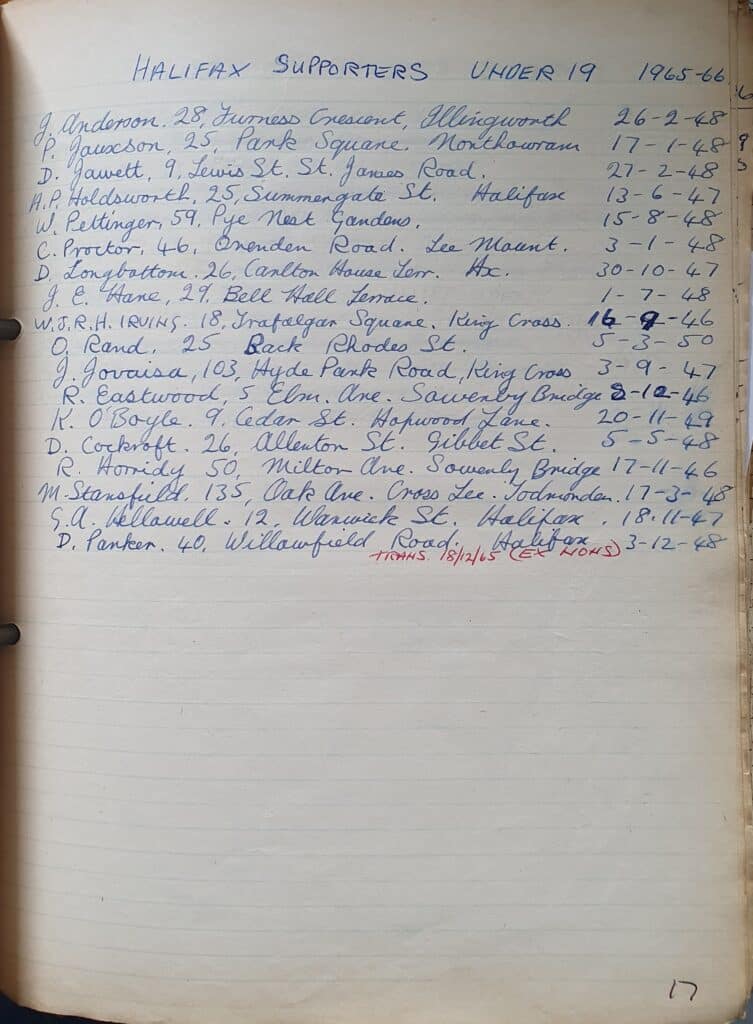 HALIFAX SUPPORTERS UNDER 19 1965-66
J. Anderson. 28, Furness Crescent, Illingworth 26-2-48
P. Jauxson, 25, Park Square. Northowram 17-1-48
D. Jawett, 9, Lewis St. St. James Road. 27-2-48
A.P. Holdsworth, 25, Summergate St. Halifax 13-6-47
W. Pettinger, 59, Pye Nest Gardens. 15-8-48
C. Proctor, 46, Ovenden Road. Lee Mount. 3-1-48
D. Longbottom. 26, Carlton House Terr. Hx. 30-10-47
J. E. Hane, 29, Bell Hall Terrace. 1-7-48
W.J.R.H. IRVING. 18, Trafalgar Square. King Cross. 16-9-46
O. Rand. 25 Back Rhodes St. 5-3-50
J. Jovaisa, 103, Hyde Park Road, King Cross 3-9-47
R. Eastwood, 5 Elm. Ave. Sowerby Bridge -12-46
K. O'Boyle. 9. Cedar St. Hopwood Lane. 20-11-49
D. Cockroft. 26, Allerton St. Gibbet St. 5-5-48
R. Horridy 50, Milton Ave. Sowerby Bridge 17-11-46
M. Stansfield. 135, Oak Ave. Cross Lee. Todmorden. 17-3-48
G.A. Hellawell. 12, Warwick St. Halifax. 18.11-47
D. Parker. 40. Willowfield Road. Halifax 3-12-48
TRANS. 18/12/65 (EX NONS)
17